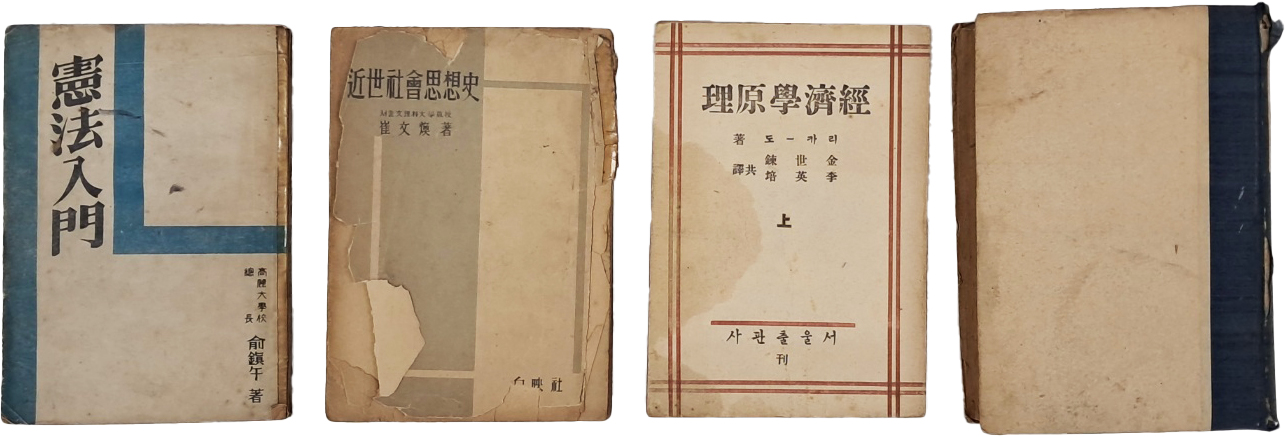 憲法入門
高麗大學校
總長
兪鎭午 著
近世社會思想史
崔文煥 著
白映社
經濟學原理
리카ー도 著
金世鍊
李英培
共譯
上
서울출판사
刊